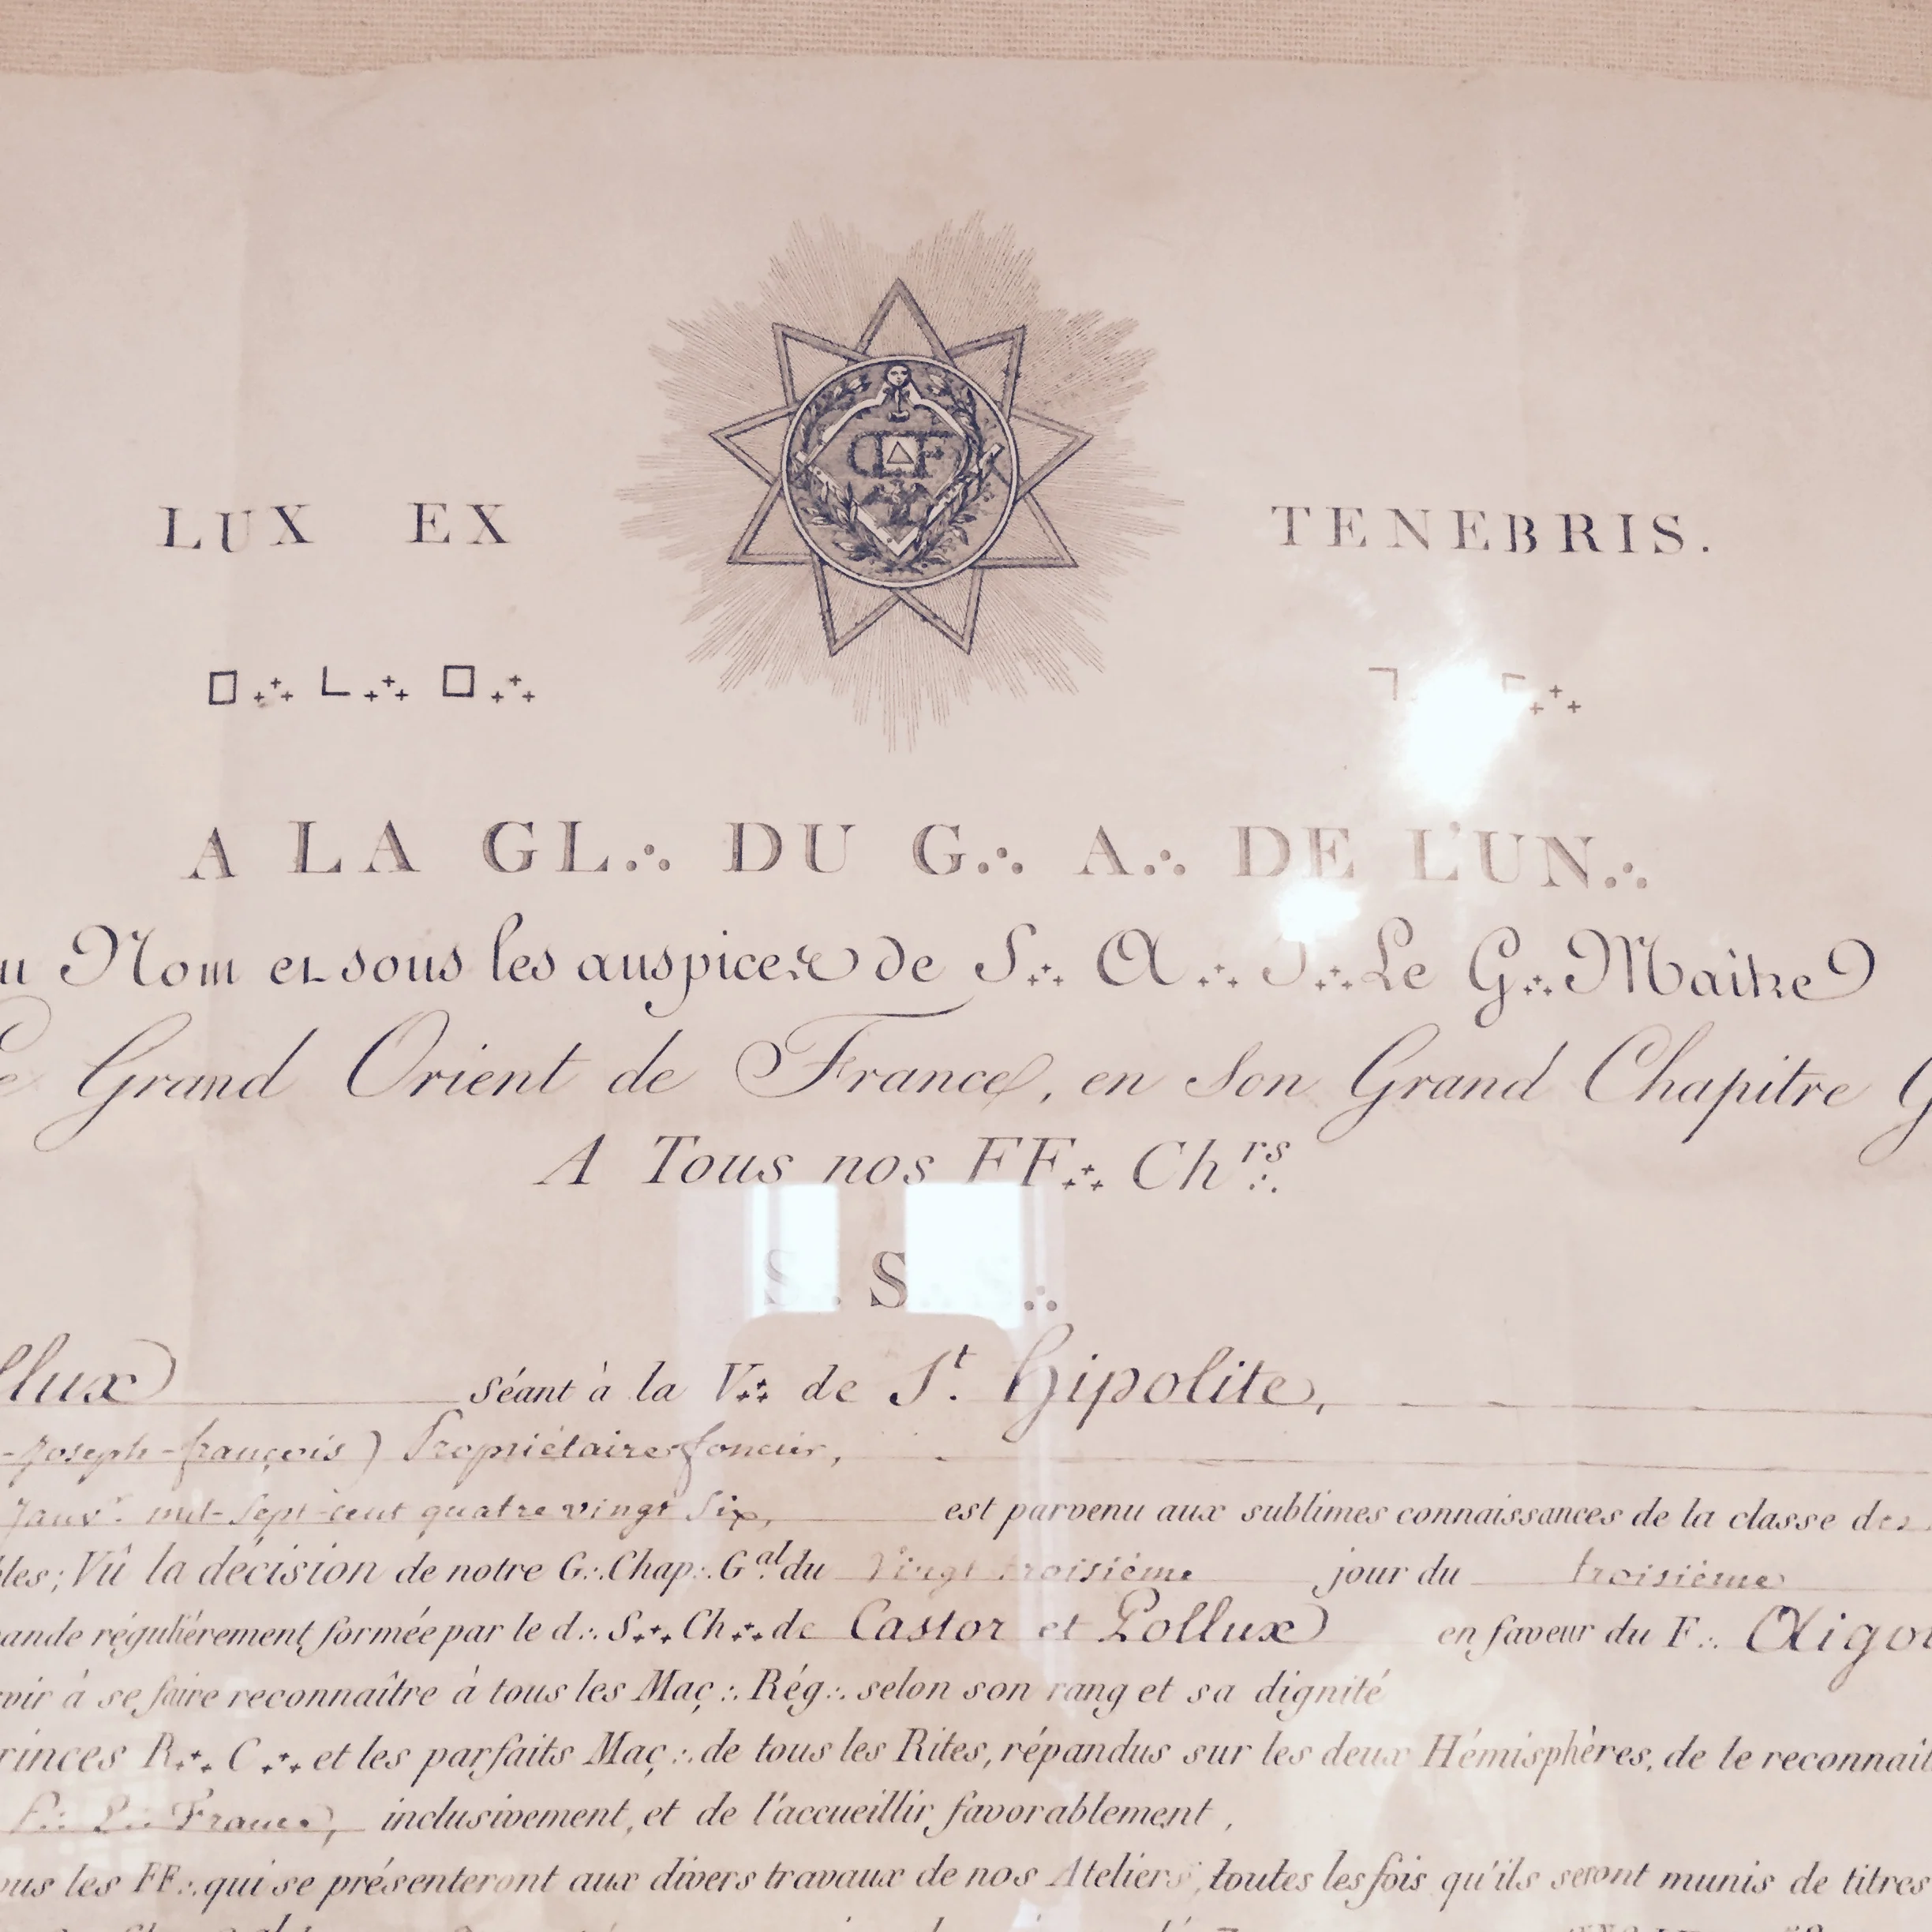 LUX EX TENEBRIS.
A LA GL∴ DU G∴ A∴ DE L'UN∴
Nom et sous les auspices de S∴ A∴ Le G∴ Maitre
Grand Orient de France, en son Grand Chapitre
A Tous nos FF∴ Ch.rs
S
séant à la V∴ de St. Hipolite,
-Joseph-françois) Propriétaire foncier,
Janvr. mil-sept-cent quatre vingt Six, est parvenu aux sublimes connaissances de la classe des
Vû la décision de notre G∴ Chap∴ G.al du Vingt troisième jour du troisième
régulièrement formée par le d∴ S∴ Ch∴ de Castor et Pollux en faveur du F∴
à se faire reconnaître à tous les Maç∴ Rég∴ selon son rang et sa dignité
R∴ C∴ et les parfaits Maç∴ de tous les Rites, répandus sur les deux Hémisphères, de le
France, inclusivement, et de l'accueillir favorablement,
les FF∴ qui se présenteront aux divers travaux de nos Ateliers, toutes les fois qu'ils seront munis de titres